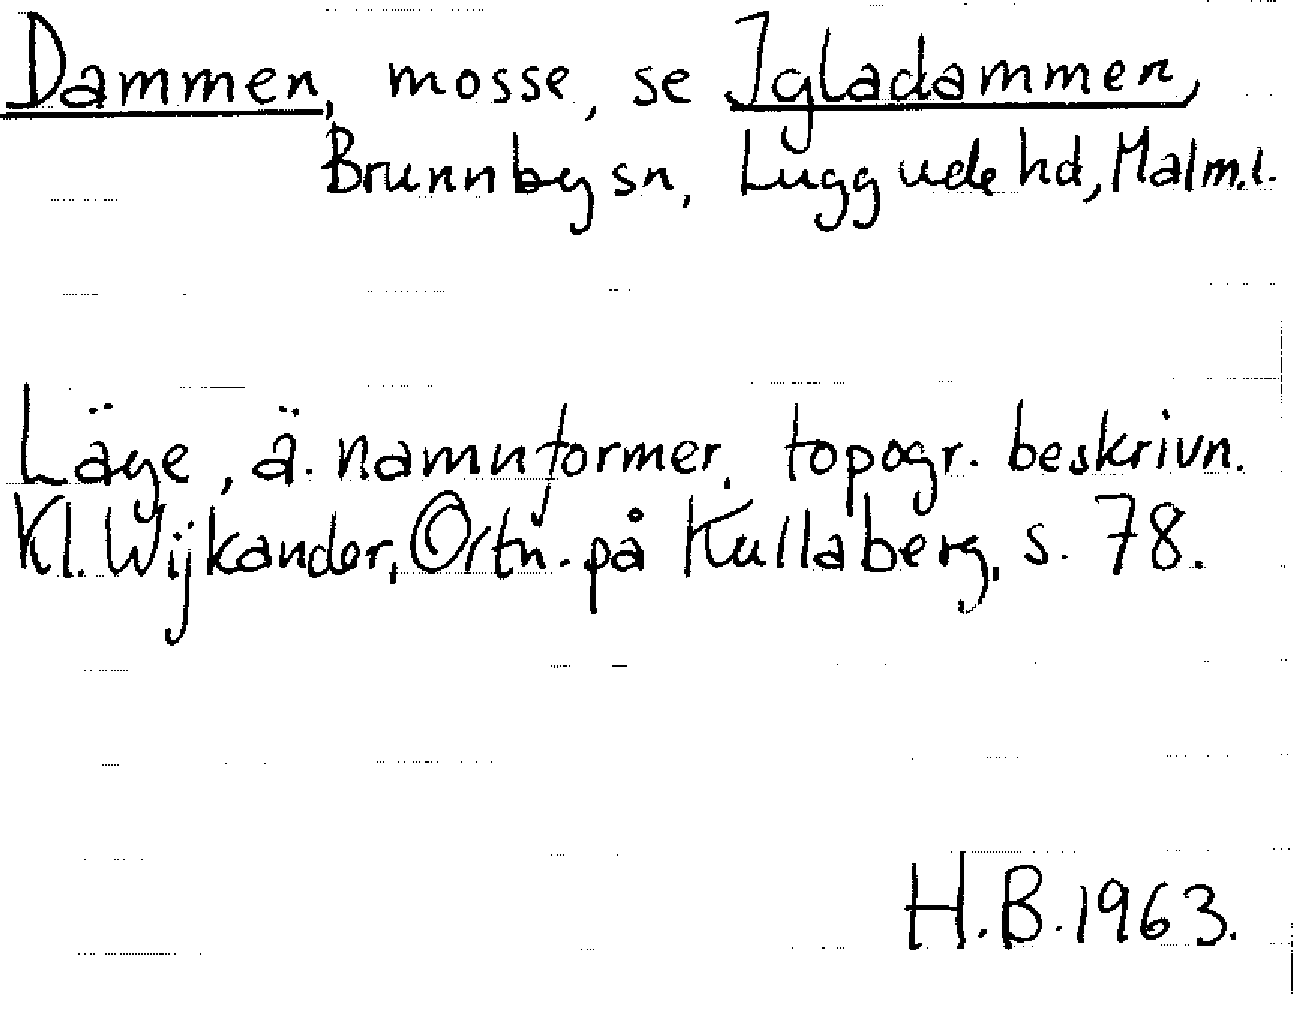 Dammen, mosse, se Igladammen,
Brunnby sn, Luggude hd, Malm.l.
Läge, ä. namnformer, topogr. beskrivn.
Kl. Wijkander, Ortn. på Kullaberg, s. 78.
H.B. 1963.